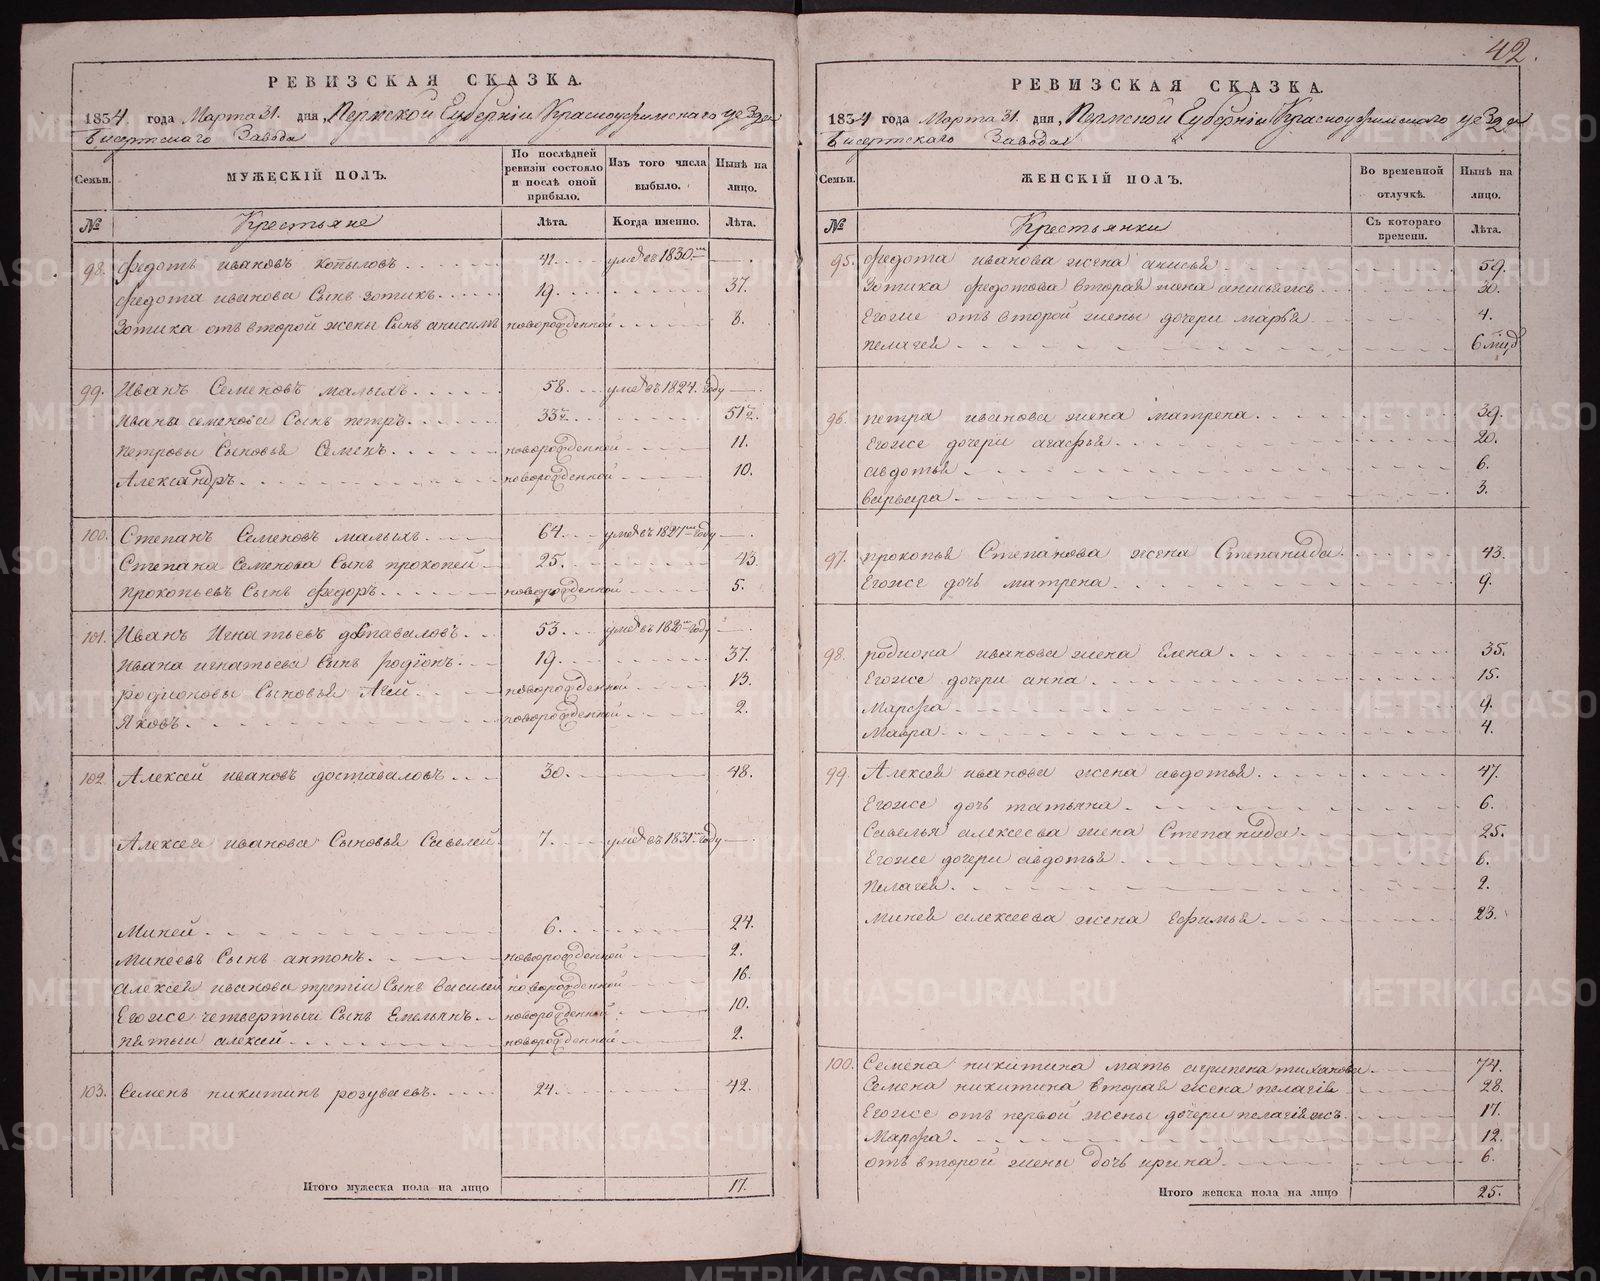 42.
РЕВИЗСКАЯ СКАЗКА.
1834 года Марта 31. дня, Пермской Губерніи Красноуфимскаго уезда
Бисертскаго Завода
Семьи.
МУЖЕСКІЙ ПОЛЪ.
По послѣдней ревизіи состояло и послѣ оной прибыло.
Изъ того числа выбыло.
Нынѣ на лицо.
№ Крестьяне Лѣта. Когда именно. Лѣта.
98. Федотъ ивановъ копыловъ 41. умре въ 1830.
Федота иванова Сынъ зотикъ 19. 37.
Зотика отъ второй жены Сынъ анисимъ новорожденной 8.
99. Иванъ Семеновъ малыхъ 58. умре въ 1824. году
Ивана семенова Сынъ петръ 33. 51.
Петровы Сыновья Семенъ новорожденной 11.
Александръ новорожденной 10.
100. Степанъ Семеновъ малыхъ 64. умре въ 1827 году
Степана Семенова Сынъ прокопей 25. 43.
Прокопьевъ Сынъ федоръ новорожденной 5.
101. Иванъ Игнатьевъ доставаловъ 53. умре въ году
Ивана игнатьева Сынъ родіонъ 19. 37.
родионовы Сыновья новорожденной 13.
Яковъ новорожденной 2.
102. Алексей ивановъ доставаловъ 30. 48.
Алексея иванова Сыновья Савелей 7. умре въ 1831 году
Миней 6. 24.
Минеевъ Сынъ антонъ новорожденной 2.
Алексея иванова третіи Сынъ василей новорожденной 16.
Егоже четвертыи Сынъ Емельянъ новорожденной 10.
пятыи алексей новорожденной 2.
103. Семенъ никитинъ розуваевъ 24. 42.
Итого мужеска пола на лицо 17.
РЕВИЗСКАЯ СКАЗКА.
1834 года Марта 31. дня, Пермской Губерніи Красноуфимскаго уезда
Бисертскаго Завода
Семьи.
ЖЕНСКІЙ ПОЛЪ.
Во временной отлучкѣ.
Нынѣ на лицо.
№ Крестьянки Съ котораго времени. Лѣта.
95. Федота иванова жена анисья 59.
Зотика федотова вторая жена анисьяжъ 30.
Егоже отъ второй жены дочери марья 4.
пелагея 6
96. петра иванова жена матрена 39.
Егоже дочери агафья 20.
авдотья 6.
варвара 3.
97. прокопья Степанова жена Степанида 43.
Егоже дочь матрена 9.
98. родиона иванова жена Елена 35.
Егоже дочери анна 15.
Марфа 9.
Мавра 4.
99. Алексея иванова жена авдотья 47.
Егоже дочь татьяна 6.
Савелья алексеева жена Степанида 25.
Егоже дочери авдотья 6.
Пелагея 2.
Минея алексеева жена Ефимья 23.
100. Семена никитина мать агрипена тиханова 74.
Семена никитина вторая жена пелагія 28.
Егоже отъ первой жены дочери пелагіяжъ 17.
Марфа 12.
отъ второй жены дочь ирина 6.
Итого женска пола на лицо 25.
METRIKI.GASO-URAL.RU